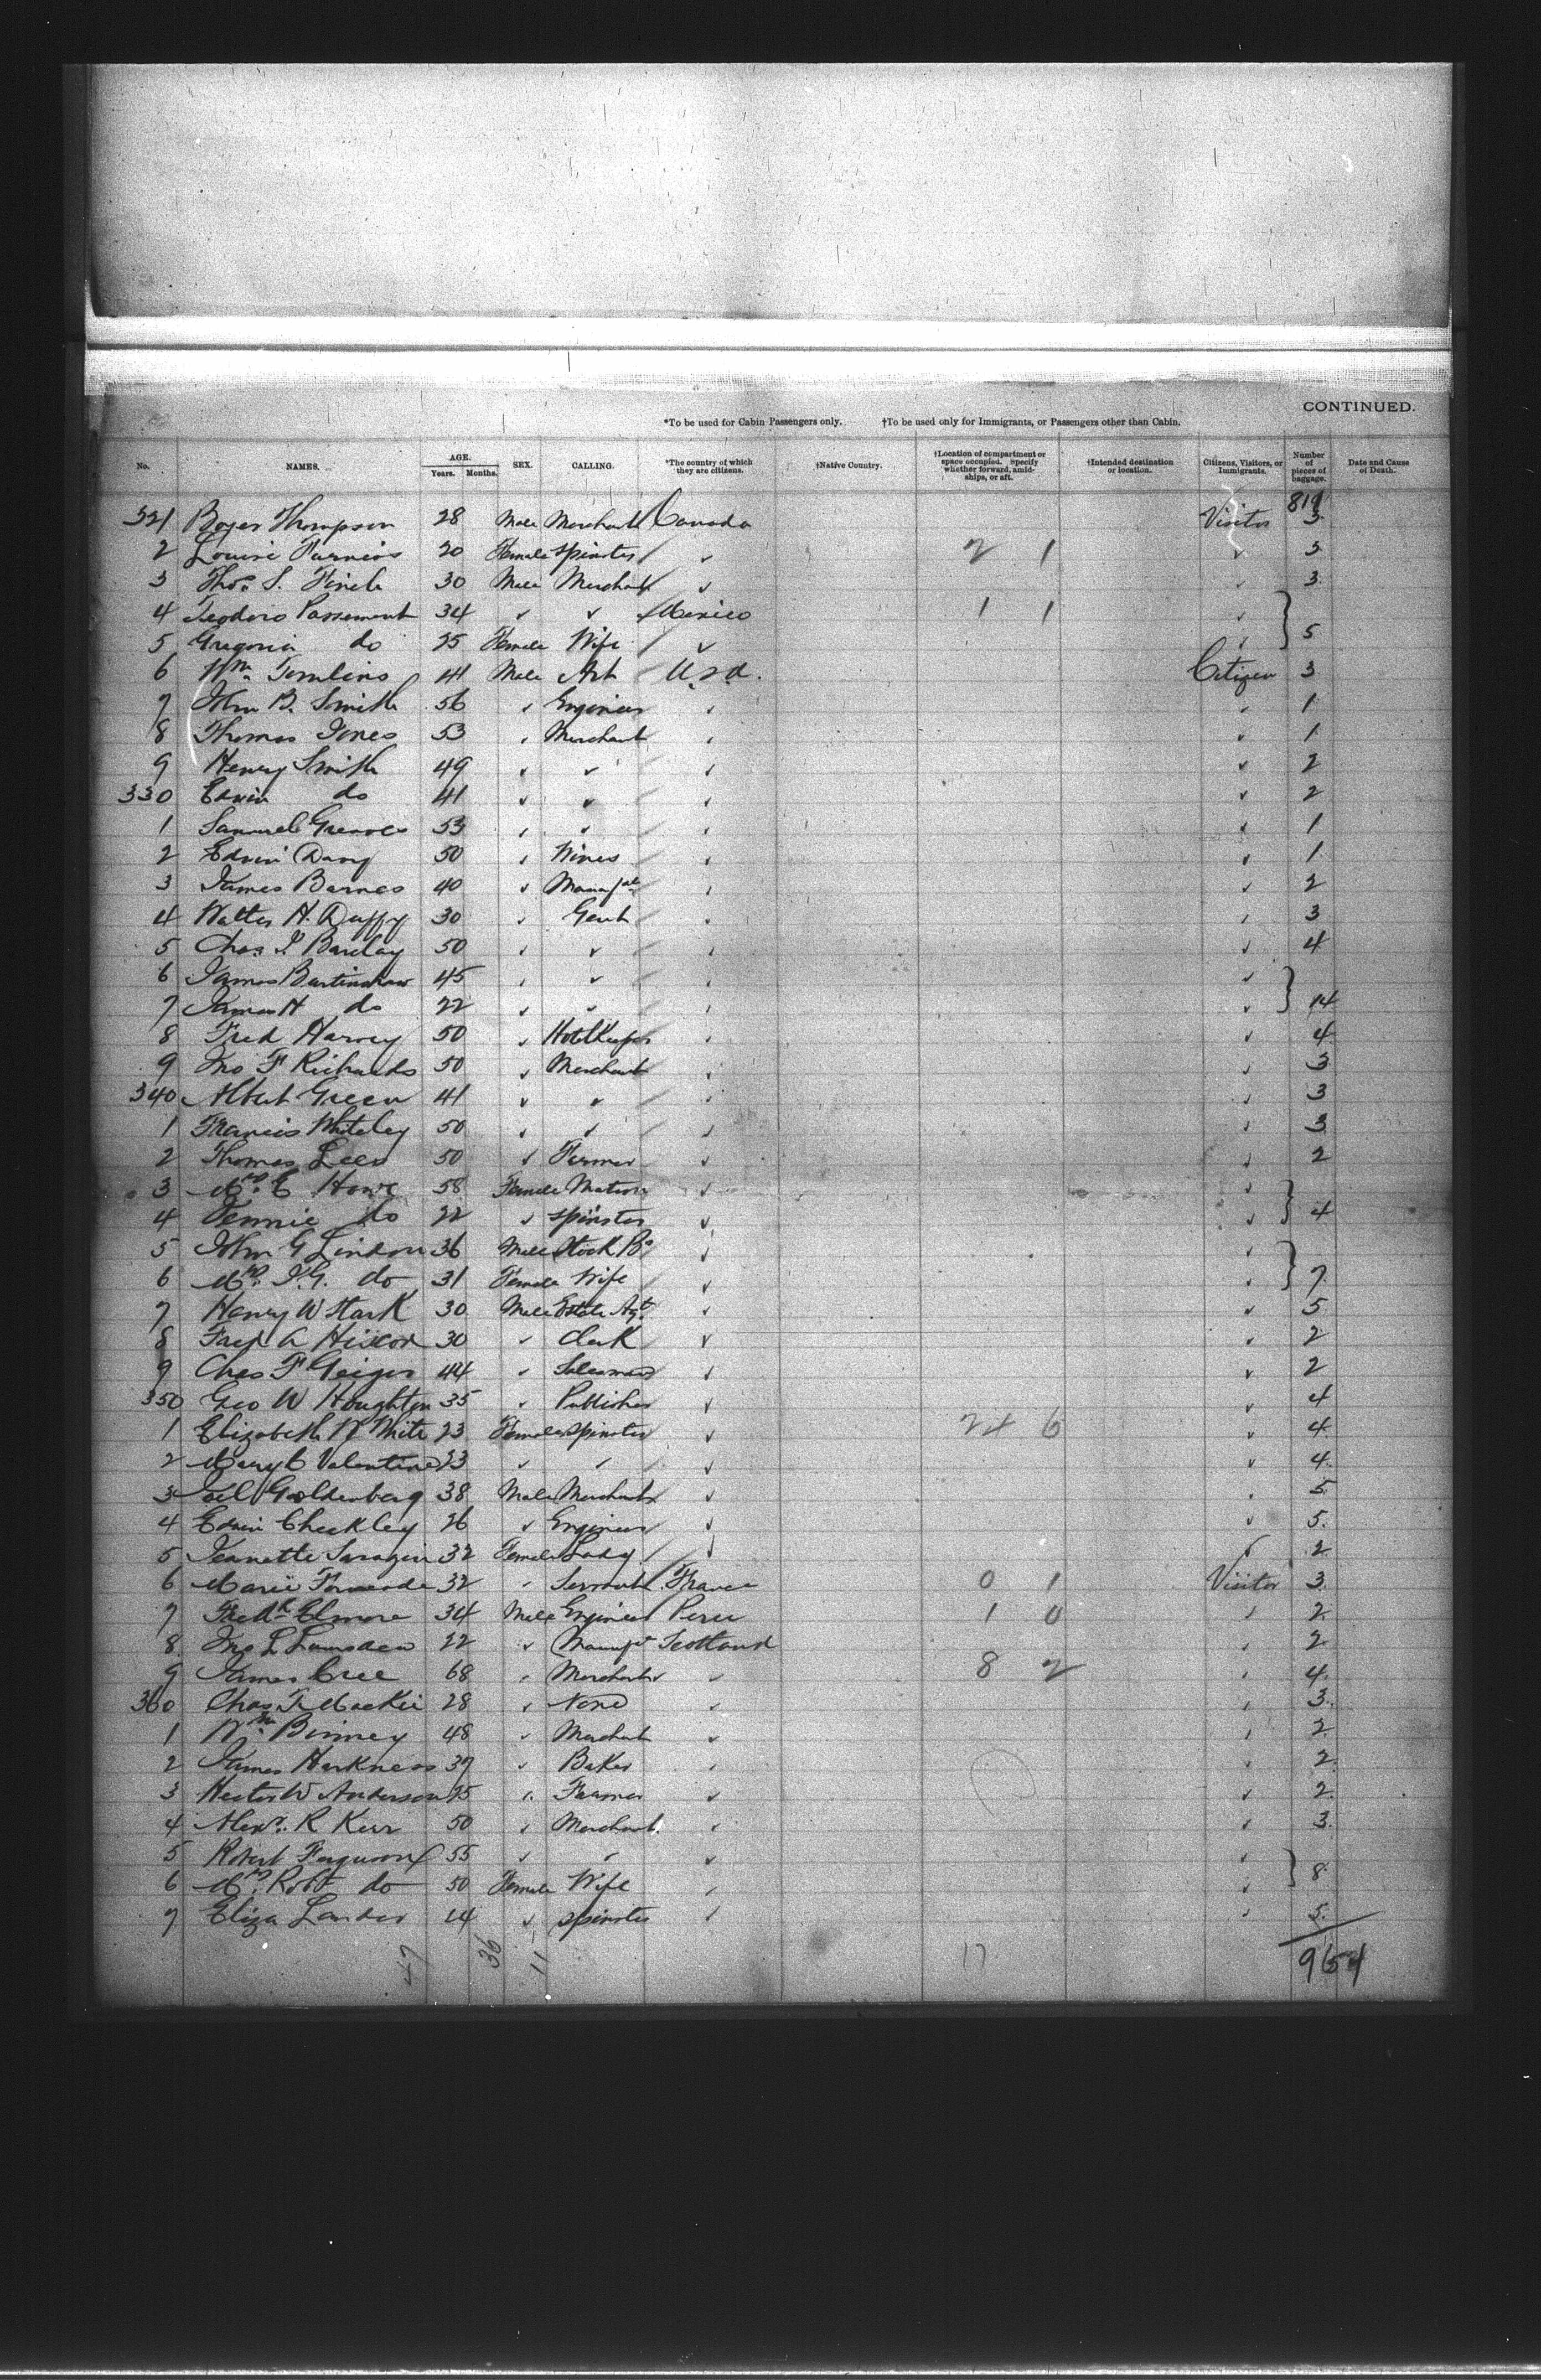 CONTINUED.
*To be used for Cabin Passengers only. †To be used only for Immigrants, or Passengers other than Cabin.
No. NAMES. AGE. Years. Months. SEX. CALLING. *The country of which they are citizens. †Native Country. †Location of compartment or space occupied. Specify whether forward, amidships, or aft. †Intended destination or location. Citizens, Visitors, or Immigrants. Number of pieces of baggage. Date and Cause of Death.
819
321 Thompson 28 Male Merchant Canada Visitor 3
2 Louise 20 Female Spinster ✓ 2 1 ✓ 3
3 Thos. S. Finch 30 Male Merchant ✓ ✓ 3
4 Teodoro Passemant 34 ✓ ✓ Mexico 1 1 ✓
5 Gregoria do 25 Female Wife ✓ ✓ } 5
6 Wm. Tomlins 41 Male Art U.S.A. Citizen 3
7 John B. Smith 56 ✓ Engineer ✓ ✓ 1
8 Thomas Jones 53 ✓ Merchant ✓ ✓ 1
9 Henry Smith 49 ✓ ✓ ✓ ✓ 2
330 Edwin do 41 ✓ ✓ ✓ ✓ 2
1 Samuel Greaves 53 ✓ ✓ ✓ ✓ 1
2 Edwin Davy 50 ✓ Wines ✓ ✓ 1
3 James Barnes 40 ✓ ✓ ✓ 2
4 Walter H. Duffy 30 ✓ Gent ✓ ✓ 3
5 Chas. J. Barclay 50 ✓ ✓ ✓ ✓ 4
6 James 45 ✓ ✓ ✓ ✓
7 James H do 22 ✓ ✓ ✓ ✓ } 14
8 Fred Harvey 50 ✓ Hotel Keeper ✓ ✓ 4
9 Jno F Richards 50 ✓ Merchant ✓ ✓ 3
340 Albert Green 41 ✓ ✓ ✓ ✓ 3
1 Francis Whiteley 50 ✓ ✓ ✓ ✓ 3
2 Thomas Lees 50 ✓ Farmer ✓ ✓ 2
3 Mrs. E Howe 58 Female Matron ✓ ✓
4 Jennie do 22 ✓ Spinster ✓ ✓ } 4
5 John G Lindon 36 Male Stock Br ✓ ✓
6 Mrs. J.G. do 31 Female Wife ✓ ✓ } 7
7 Henry W Stark 30 Male Estate Agt. ✓ ✓ 5
8 Fred A 30 ✓ Clerk ✓ ✓ 2
9 Chas F Geiger 44 ✓ Salesman ✓ ✓ 2
350 Geo W Houghton 35 ✓ Publisher ✓ ✓ 4
1 Elizabeth W White 23 Female Spinster ✓ 24 6 ✓ 4
2 Mary C Valentine 23 ✓ ✓ ✓ ✓ 4
3 Joel Goldenberg 38 Male Merchant ✓ ✓ 5
4 Edwin Checkley 26 ✓ Engineer ✓ ✓ 5
5 Jeanette 32 Female Lady ✓ ✓ 2
6 Marie 32 ✓ Servant France 0 1 Visitor 3
7 Fredk Elmore 34 Male Engineer Peru 1 0 ✓ 2
8 Jno L Lumsden 22 ✓ Scotland ✓ 2
9 James Cree 68 ✓ Merchant ✓ 8 2 ✓ 4
360 Chas. Mackie 28 ✓ None ✓ ✓ 3
1 Wm. Binney 48 ✓ Merchant ✓ ✓ 2
2 James Harkness 37 ✓ Baker ✓ ✓ 2
3 Hector W Anderson 25 ✓ Farmer ✓ ✓ 2
4 Alexr. R Kerr 50 ✓ Merchant ✓ ✓ 3
5 Robert Ferguson 55 ✓ ✓ ✓ ✓
6 Mrs. Robt do 50 Female Wife ✓ ✓ } 8
7 Eliza 14 ✓ Spinster ✓ ✓ 5
47 36 11 17 954